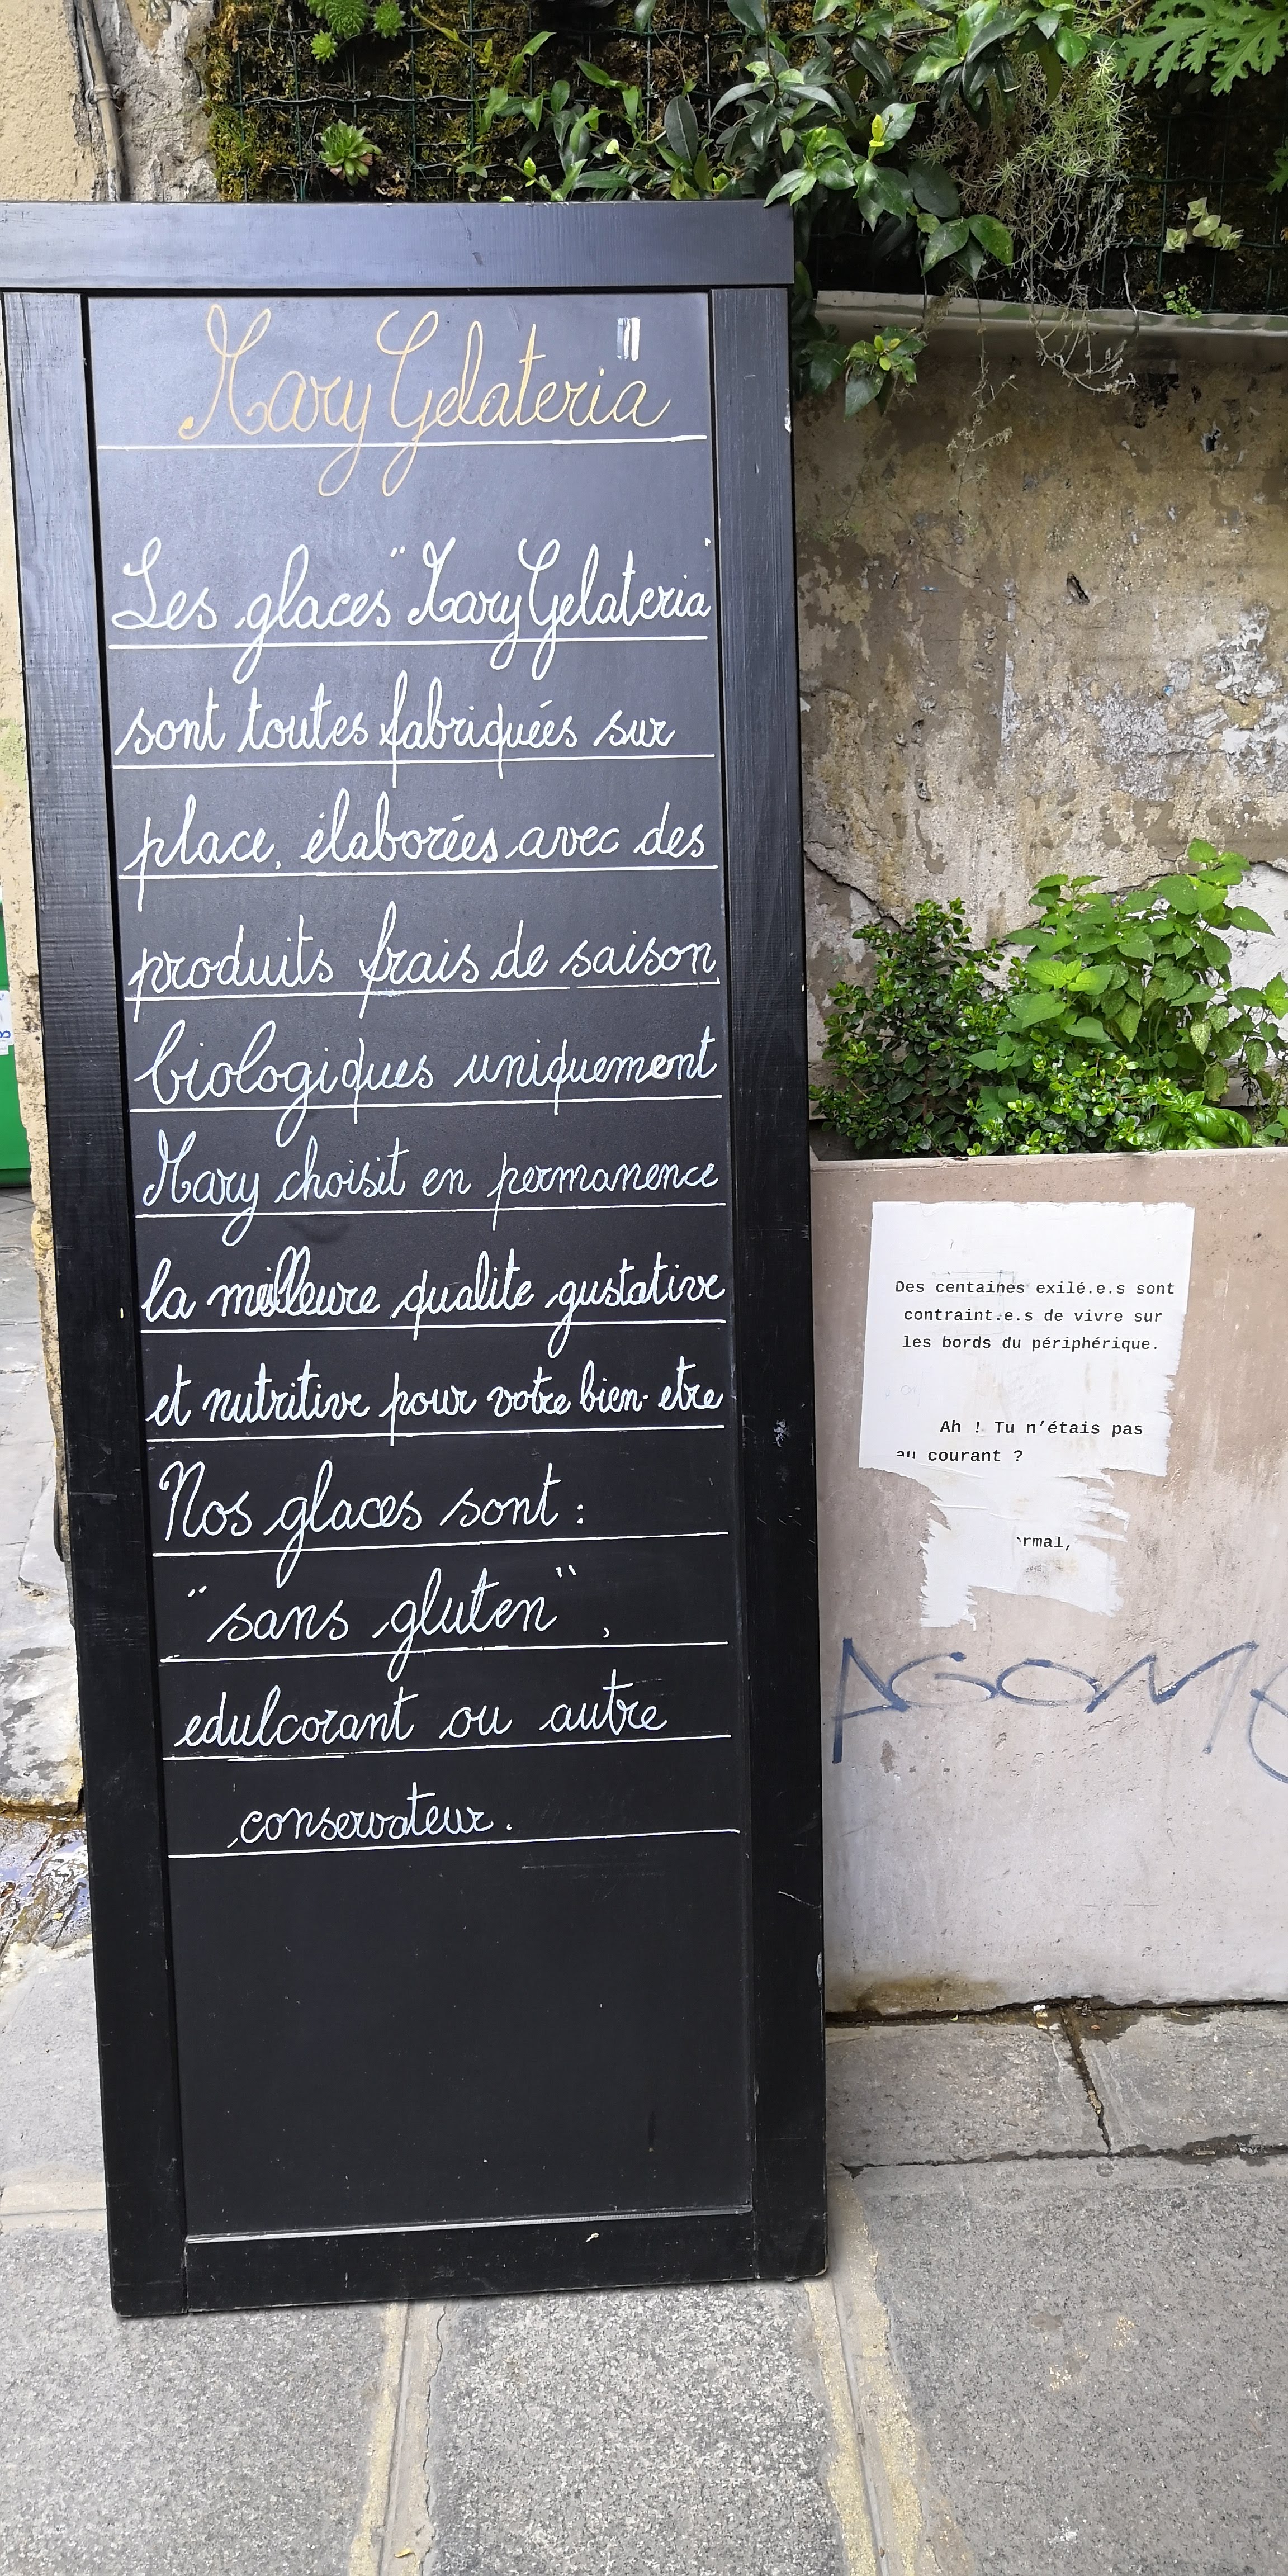 Mary Gelateria
Les glaces "Mary Gelateria"
sont toutes fabriquées sur
place, élaborées avec des
produits frais de saison
biologiques uniquement
Mary choisit en permanence
la meilleure qualite gustative
et nutritive pour votre bien-etre
Nos glaces sont :
"sans gluten",
edulcorant ou autre
conservateur.
Des centaines exilé.e.s sont
contraint.e.s de vivre sur
les bords du périphérique.
Ah ! Tu n'étais pas
au courant ?
ormal,